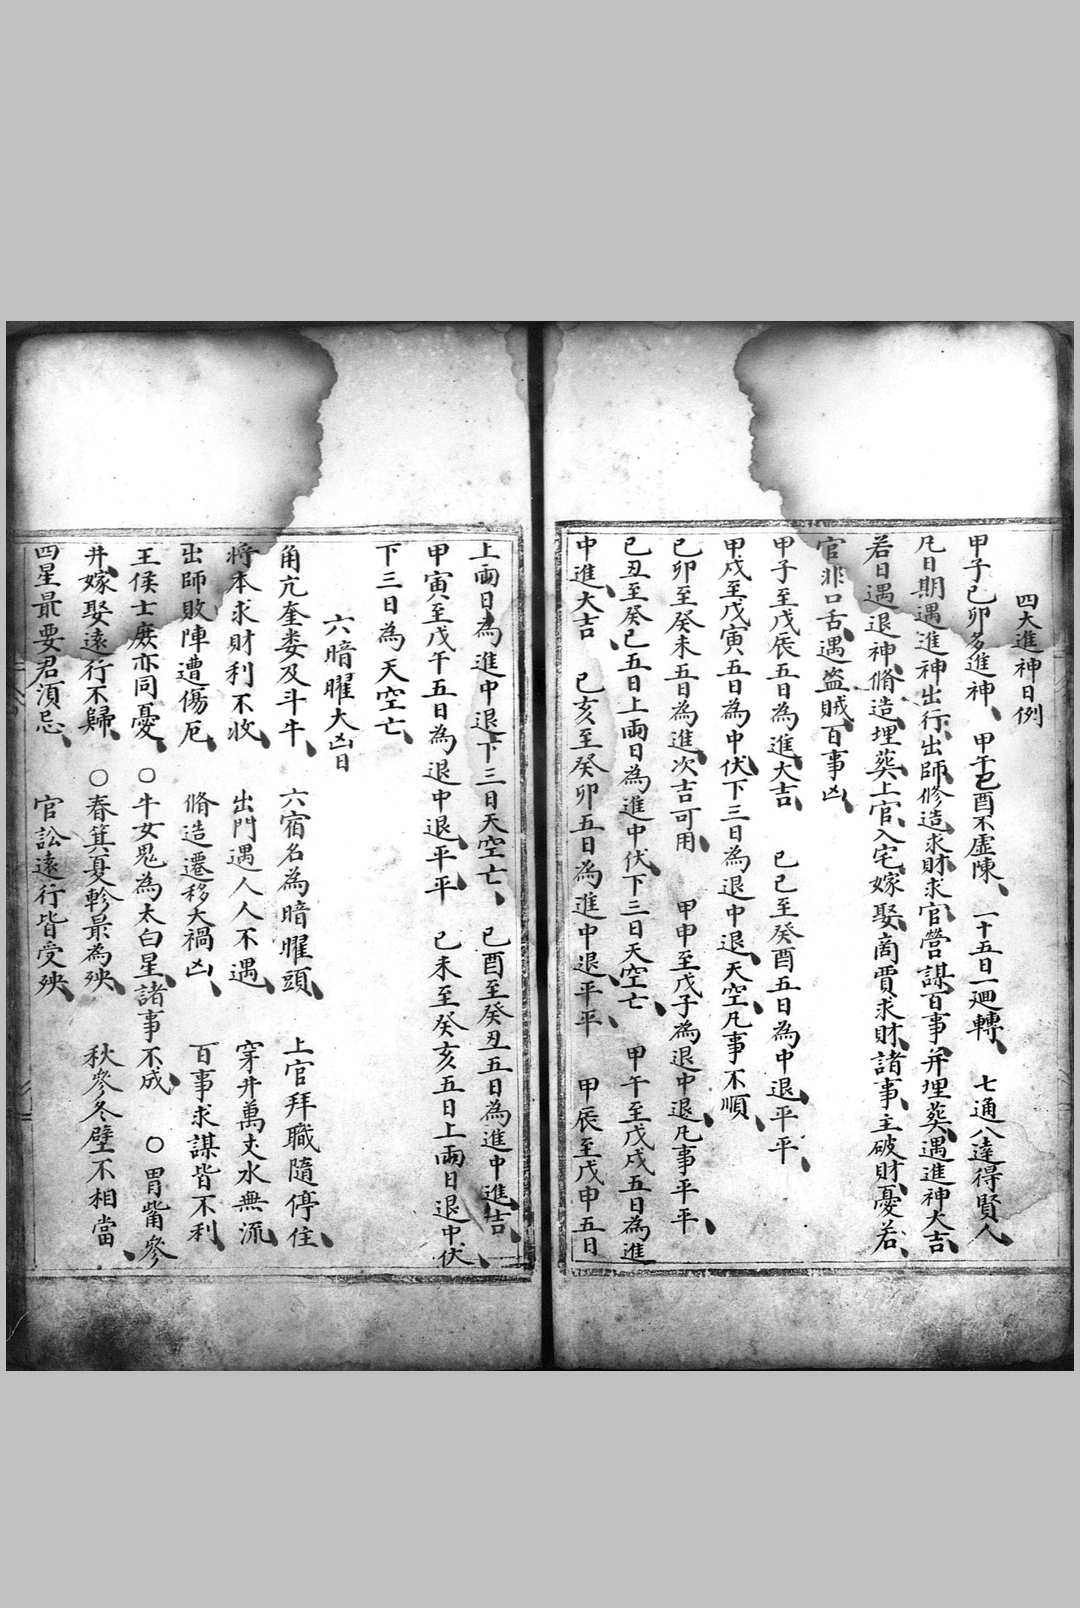 四大進神日例
甲子己卯多進神、甲午己酉不虛陳、一十五日一廻轉、七通八達得賢人、
凡日期遇進神出行、出師、修造、求財、求官、營謀、百事、并埋葬、遇進神大吉、
若日遇退神、脩造、埋葬、上官、入宅、嫁娶、商賈、求財、諸事、主破財、憂若、
官非口舌、遇盜賊、百事凶、
甲子至戊辰五日為進、大吉、己巳至癸酉五日為中退、平平、
甲戌至戊寅五日為中伏、下三日為退中退、天空、凡事不順、
己卯至癸未五日為進、次吉可用、甲申至戊子為退中退、凡事平平、
己丑至癸巳五日上兩日為進中伏、下三日天空亡、甲午至戊戌五日為進
中進、大吉、己亥至癸卯五日為進中退、平平、甲辰至戊申五日
上兩日為進中退、下三日天空亡、己酉至癸丑五日為進中進、吉、
甲寅至戊午五日為退中退、平平、己未至癸亥五日上兩日退中伏、
下三日為天空亡、
六暗曜大凶日
角亢奎娄及斗牛、六宿名為暗曜頭、上官拜職隨停住、
將本求財利不收、出門遇人人不遇、穿井萬丈水無流、
出師敗陣遭傷厄、脩造遷移大禍凶、百事求謀皆不利、
王侯士庶亦同憂、○牛女鬼為太白星、諸事不成、○胃觜參
井、嫁娶遠行不歸、○春箕夏軫最為殃、秋參冬壁不相當、
四星最要君須忌、官訟遠行皆受殃、